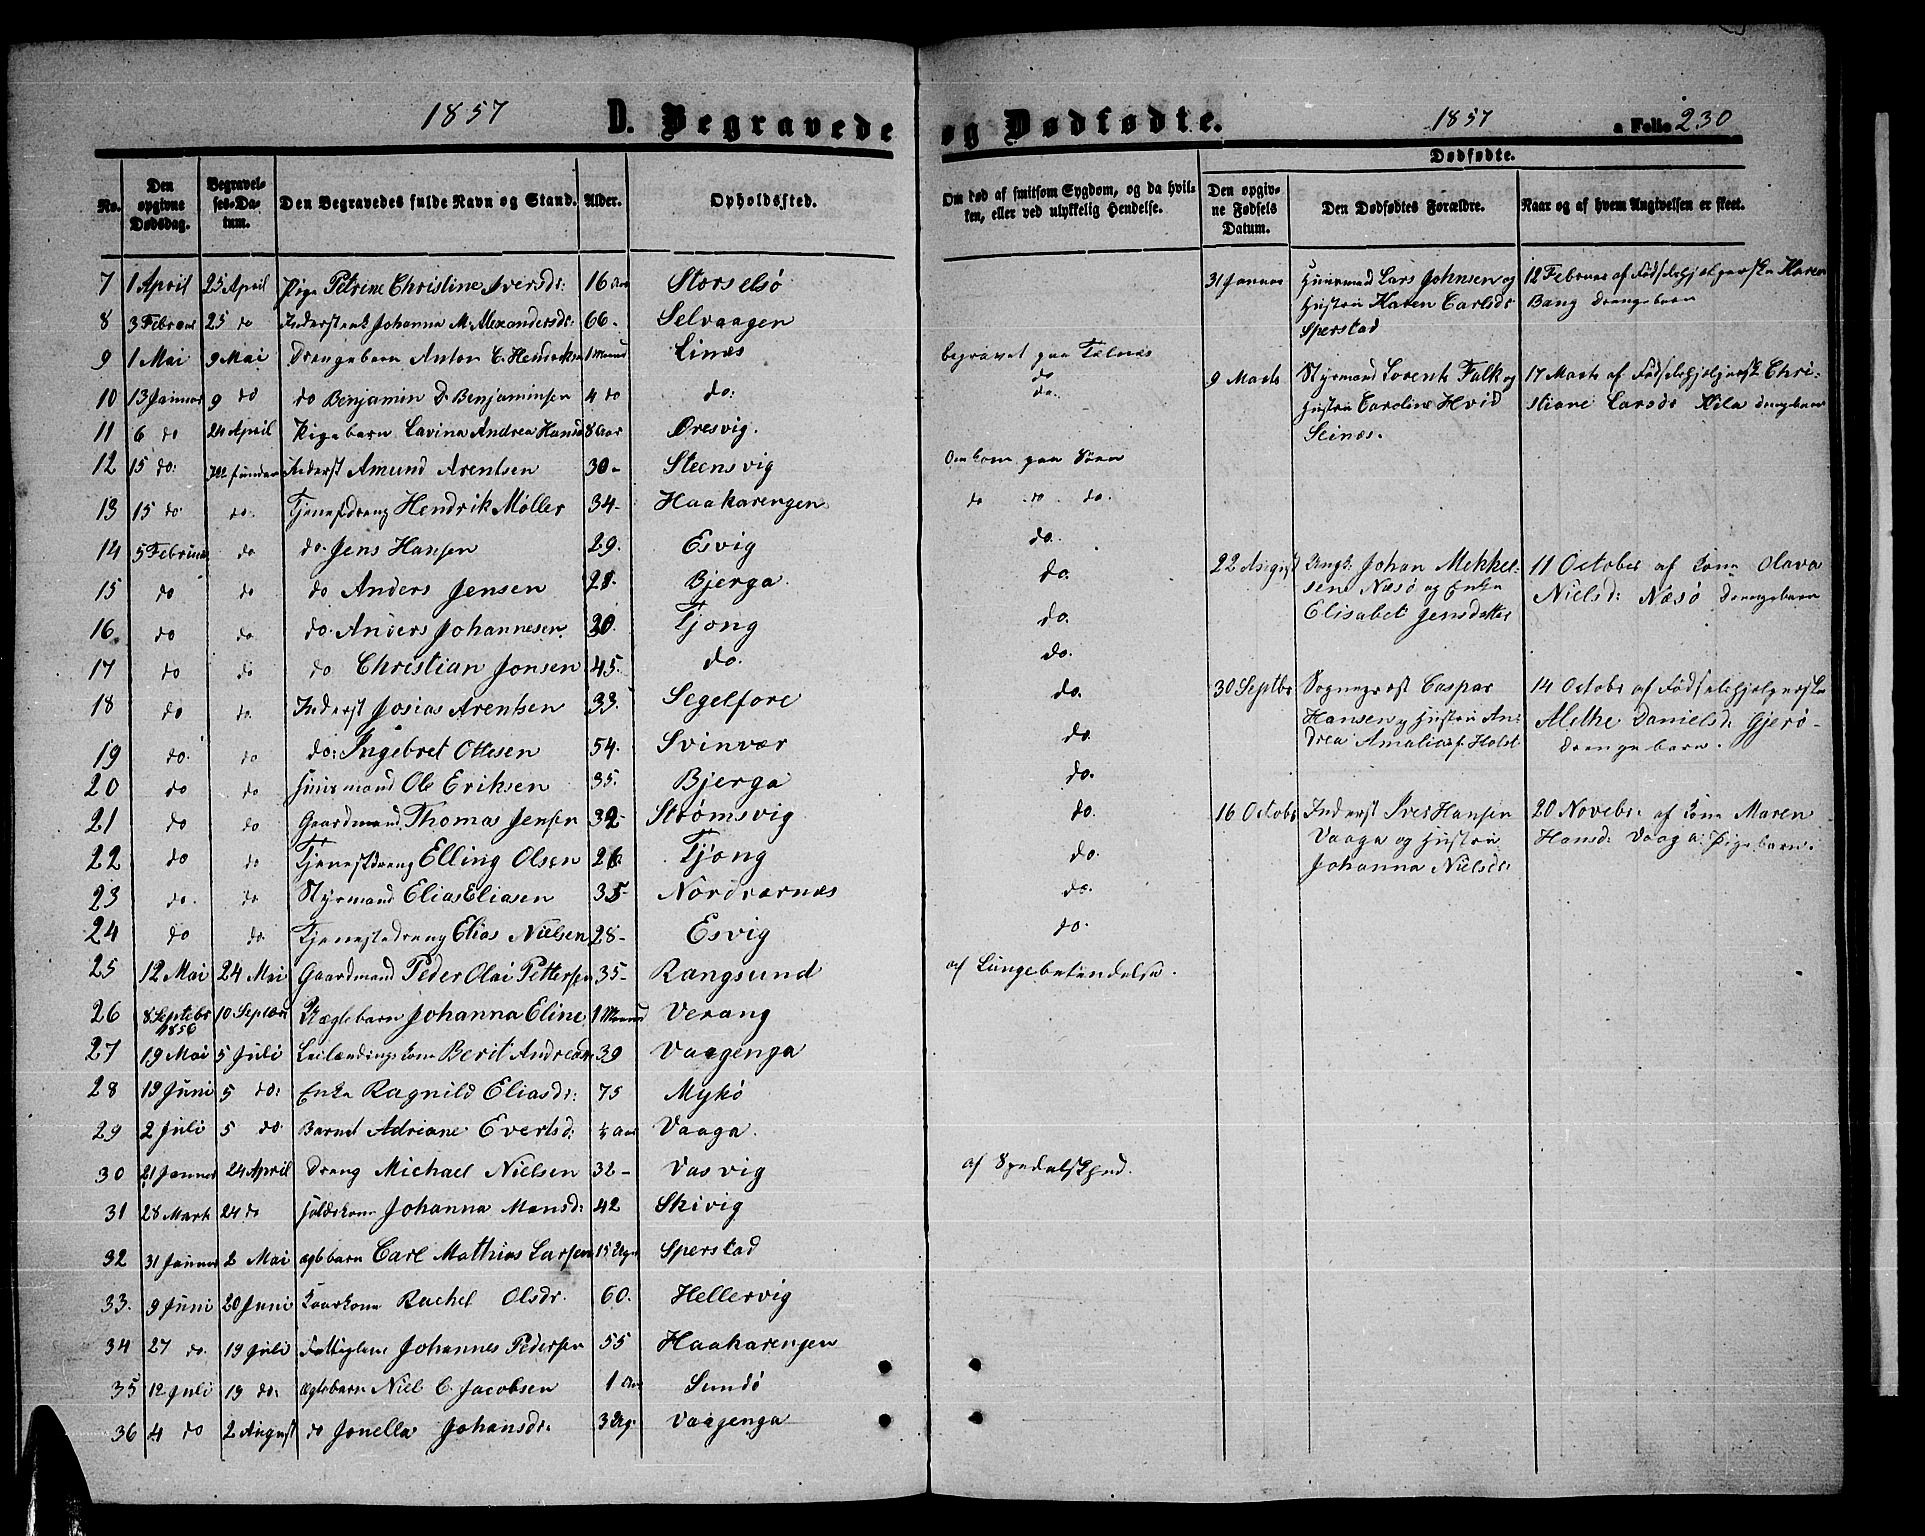 1857 D. Begravede
No. Den opgivne Dødsdag. Begravelses-Datum. Den Begravedes fulde Navn og Stand. Alder. Opholdssted.
7 1 April 25 April Pige Petrine Christine Iversdr: 16 Aar Storselsø
8 3 Februar 25 do Inderstenk Johanna M. Alexandersdr: 66- Selvaagen
9 1 Mai 9 Mai Drengebarn Anton C. Hendriksen 1 Maaned Linæs
10 13 Januar 9 do do Benjamin D. Benjaminsen 4 do do:
11 6 do 24 April Pigebarn Lavina Andrea Hansd 8 Aar Øresvig.
12 15 do: Ikke funden Inderst Amund Arentsen 30- Steensvig
13 15 do do. Tjenestdreng Hendrik Møller 34- Haakarengen
14 5 Februar do do. Jens Hansen 29. Esvig
15 do do do Anders Jensen 21. Bjerga.
16 do do do. Anders Johannesen 20. Tjong
17 do do do Christian Jonsen 45. do.
18 do do. Inderst Josias Arentsen 33. Segelfore
19 do. do do. Ingebret Ottesen 54. Svinvær
20 do do Huusmand Ole Eriksen 35. Bjerga
21 do do Gaardmand Thomas Jensen 32- Strømsvig
22 do do Tjenestdreng Elling Olsen 26 Tjong
23 do. do Styrmand Elias Eliasen 35- Nordværnæs
24 do do. Tjenestedreng Elias Nielsen 28- Esvig
25 12 Mai 24 Mai Gaardmand Peder Olai Pettersen 35- Rangsund
26 8 Septebr 1856 10 Septbr Uægtebarn Johanna Eline 1 Maaned Verang
27 19 Mai 5 Juli Leilændingskone Berit Andreasdr 39 Vaagenga
28 19 Juni 5 do: Enke Ragnild Eliasdr: 75 Mykø
29 2 Juli 5 do Barnet Adriane Evertsd: ½ Aar Vaaga.
30 21 Januar 24 April Dreng Michael Nielsen 32- Vasvig
31 28 Marts 24 do Johanna Monsd: 42 Skivig
32 31 Januar 2 Mai ægtebarn Carl Mathias Larsen 15 Uger Sperstad
33. 9 Juni 20 Juni Kaarkone Rachel Olsdr. 60. Hellervig
34 27 do. 19 Juli Fattiglem Johannes Pedersen 55 Haakarengen
35 12 Juli 19 do: ægtebarn Niel C. Jacobsen 1 Aar Sundø
36 4 do 2 August do Jonella Johansdr: 3 Ug. Vaagenga
og Dødfødte. 1857 a Folio 230
Om død af smitsom Sygdom, og da hvilken, eller ved ulykkelig Hendelse.
Dødfødte.
Den opgivne Fødsels Datum. Den Dødfødtes Forældre. Naar og af hvem Angivelsen er skeet.
begravet paa Telnæs
do
do.
Omkom paa Søen
do do do.
do.
do.
do.
do.
do.
do.
do.
do.
do.
do.
do.
af Lungebetendelse.
af Spedalskhed.
31 Januar Huusmand Lars Johnsen og 12 Februar af Fødselshjelperske Karen
Hustru Karen Carlsdr Bang Drengebarn
Sperstad
9 Marts Styrmand Lorents Falk og 17 Marts af Fødselshjelpersk Chri-
Hustru Caroline Hvid stiane Larsdr Kila Drengebarn
Seinæs.
22 August Ungk. Johan Mekkel- 11 October af Kone Olava
sen Næsø og Enke Nielsd: Næsø Drengebarn
Elisabet Jensdatter
30 Septbr Sogneprest Caspar 14 Octobr af Fødselshjelperske
Hansen og Hustru An- Alethe Danielsd: Gjerø-
drea Amalia f. Holst Drengebarn.
16 Octobr Inderst Iver Hansen 20 Novebr: af Kone Maren
Vaaga og Hustru Hansd: Vaaga: Pigebarn.
Johanna Nielsdr